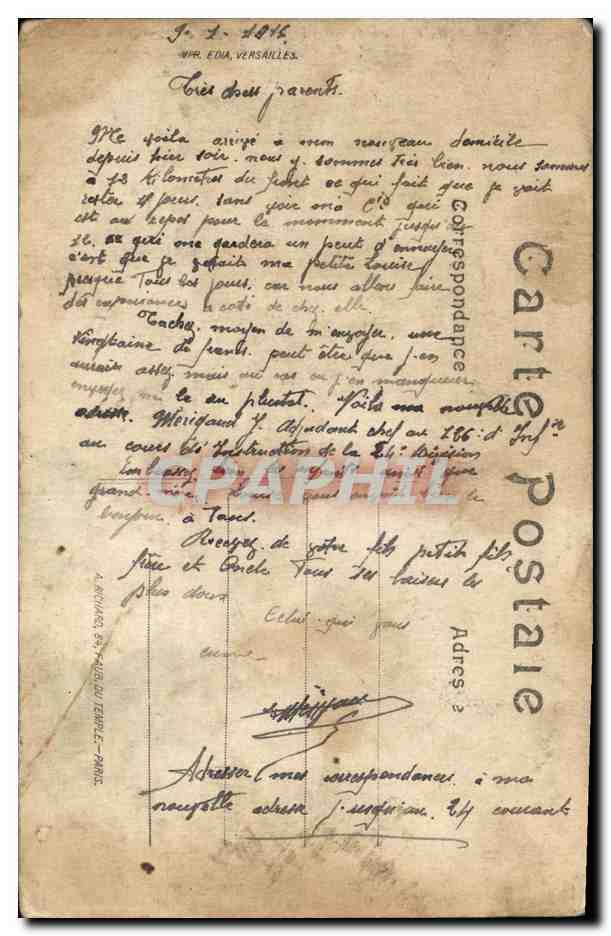 9-1-1916
IMP. EDIA, VERSAILLES.
Très chers parents.
Me voila arrivé à mon nouveau domicile
depuis hier soir. nous y sommes très bien. nous sommes
à 12 kilomètres du front ce qui fait que je vait
rester jours sans voir ma Cie qui
est au repos pour le momment jusqu'
ce qui me gardera un peut d'ennuyer
c'est que je vait ma petite Louise
presque Tous les jours. car nous allons faire
des experiences a coté de chez elle.
Tachez moyen de m'envoyer une
vingtaine de francs. peut être que j'en
aurais assez mais au cas ou j'en manquerer
envoyez me le au plustot. Voila ma nouvelle
adresse. Mérigaud J. Adjudant chef au 126e d'Infie
au cours d'Instruction de la 24e Division
Embrassez bien
grand
bonjour à Tous.
Recevez de votre fils petit fils
frère et Oncle Tous ses baisers les
plus doux
Celui qui vous
aime
Adresser mes correspondances à ma
nouvelle adresse jusqu'au 24 courant
Carte Postale
Correspondance
Adresse
A. RICHARD, 84, FAUB. DU TEMPLE.—PARIS.
CPAPHIL.COM